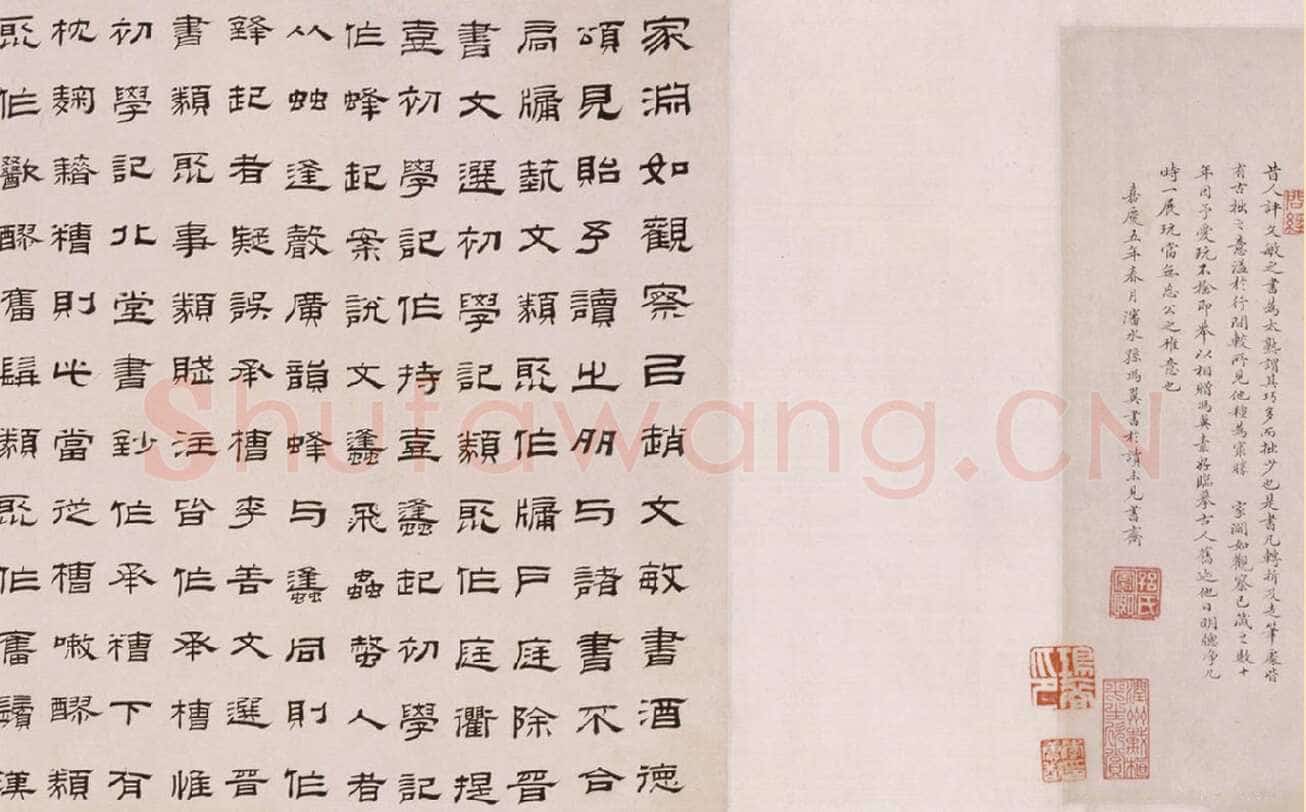 昔人評文敏之書為太熟謂其巧多而拙少也是書凡轉折及走筆處皆
有古拙之意溢於行間較所見他種為寀勝 家澗如觀察已藏之數十
年因予愛玩不捨即舉以相贈馮翼素好臨摹古人舊迹他日明牕净几
時一展玩當無忘公之雅意也
嘉慶五年春月瀋水孫馮翼書於讀未見書齋
家淵如觀察㠯趙文敏書酒德
頌見貽予讀之与諸書不合
扃牖埶文類聚作牖戶庭除晉
書文選初學記類聚作庭衢提
壺初學記作持壺䗬起初學記
作蜂起案說文䗬飛蟲螫人者
从䖵逢聲廣韻蜂与䗬同則作
鋒起者疑誤承槽李善文選晉
書類聚事類賦注皆作承槽惟
初學記北堂書鈔作承糟下有
枕麹藉糟則此當從槽嗽醪類
聚作歠醪奮髯類聚作奮鬚漢
Shufawang.CN